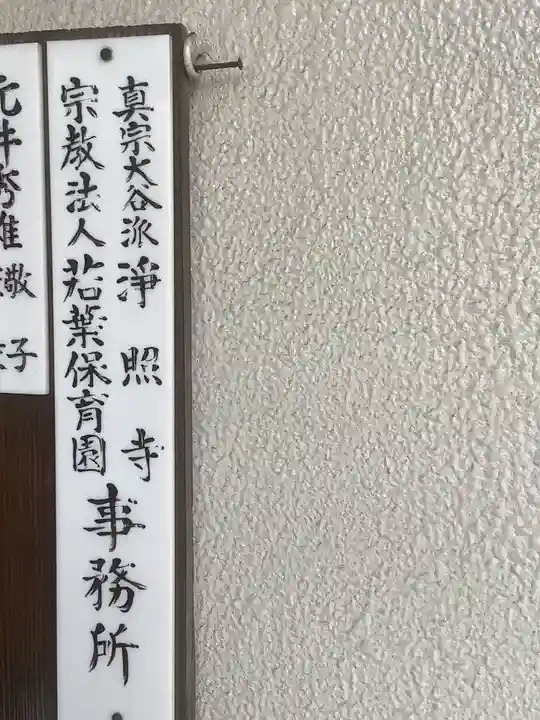 真宗大谷派 淨照寺
宗教法人 若葉保育園
事務所
秀雄
敬
子